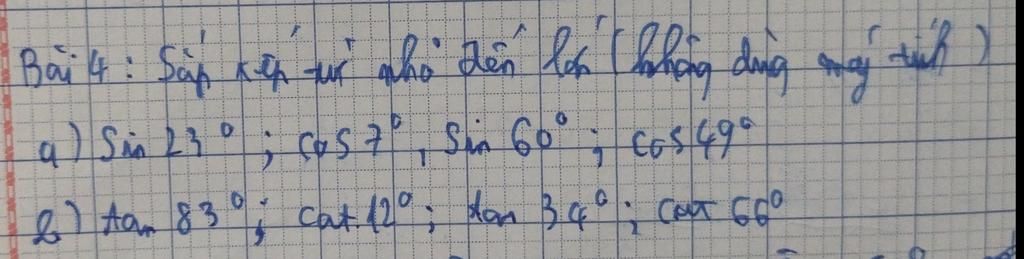 Bài 4: Sắp xếp từ nhỏ đến lớn (không dùng máy tính)
a) Sin 23°; cos 7°, Sin 60°; cos 49°
b) tan 83°; cot 12°; tan 34°; cot 66°